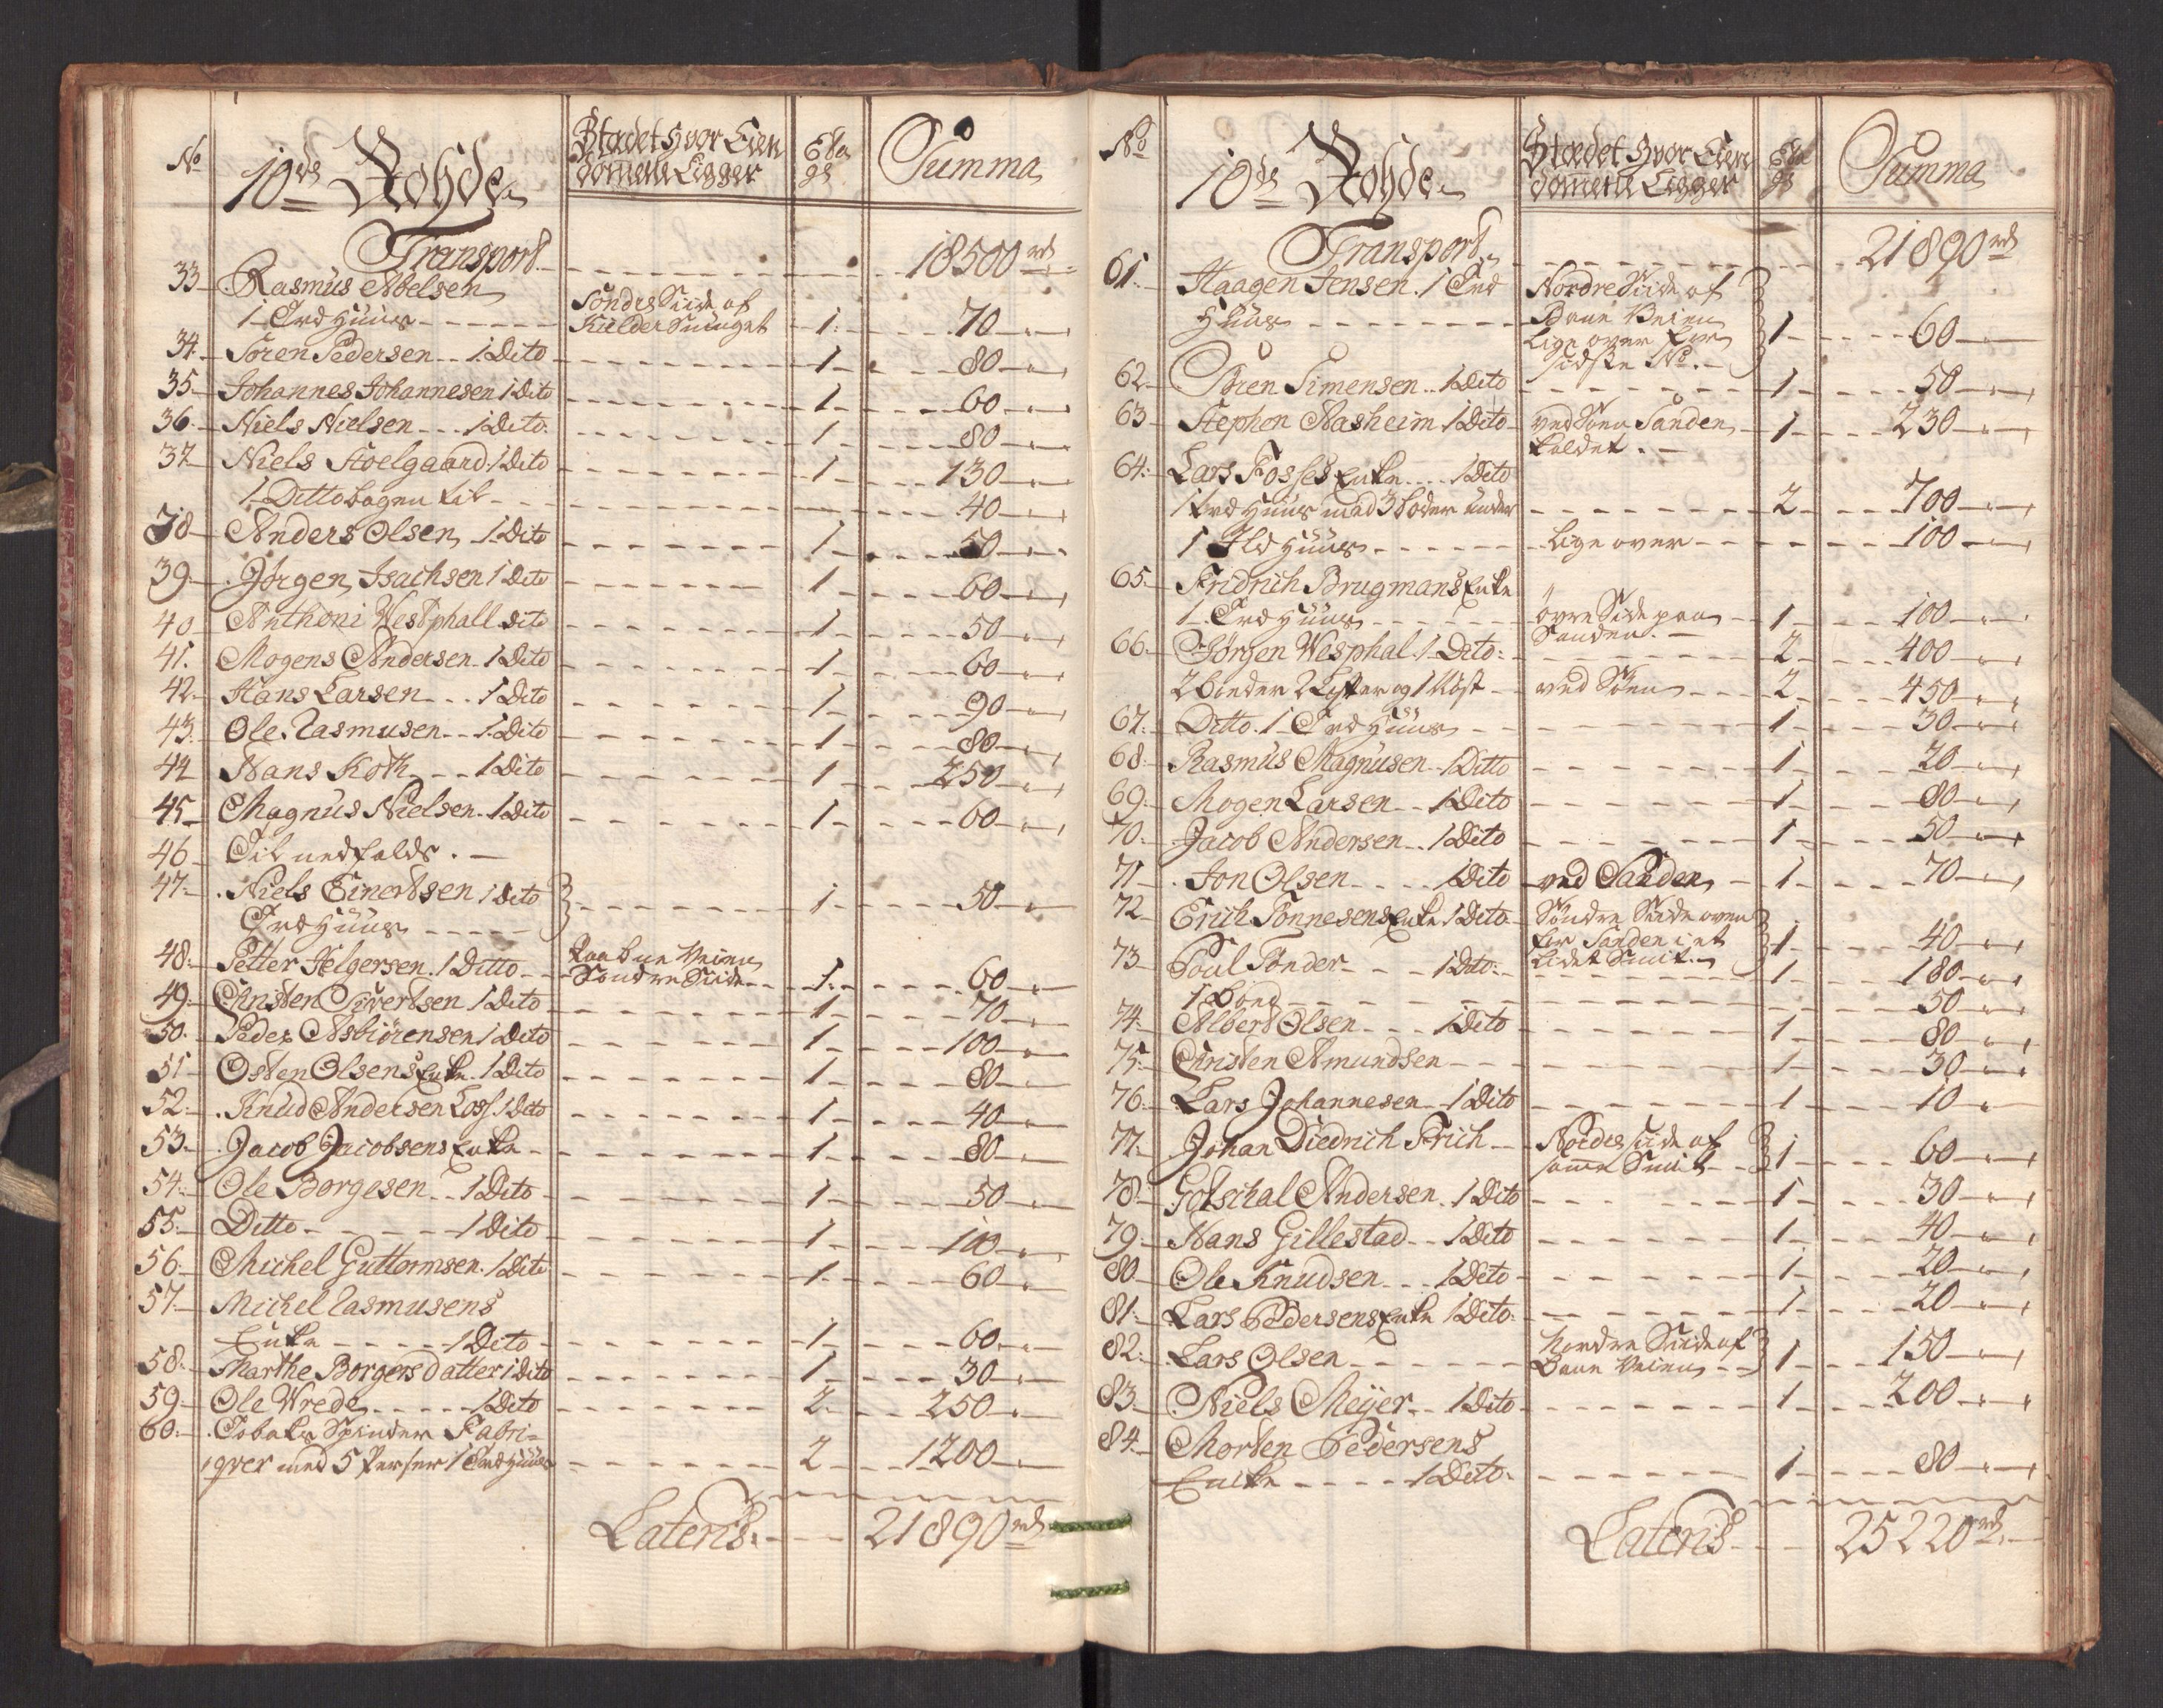 No 10de Rohde Stædet hvor Eien Eta Summa
domene Ligger ge
Transport 18500 rd
33 Rasmus Abelsen
1 Ird Huus Søndre Siide af
Kulder Smuget 1 70
34 Søren Pedersen 1 Dito 1 80
35 Johannes Johannesen 1 Dito 1 60
36 Niels Nielsen 1 Dito 1 80
37 Niels Stoelgaard 1 Dito 1 130
1 Ditto bagen til 40
38 Anders Olsen 1 Dito 1 50
39 Jørgen Isachsen 1 Dito 1 60
40 Anthoni Westphall dito 1 50
41 Mogens Andersen 1 Dito 1 60
42 Hans Larsen 1 Dito 1 90
43 Ole Rasmusen 1 Dito 1 80
44 Hans Koth 1 Dito 1 250
45 Magnus Nielsen 1 Dito 1 60
46 Til nedfalds
47 Niels Einertsen 1 dito 1 50
Ird Huus
48 Petter Helgersen 1 Ditto Veien
Søndre Siide 1 60
49 Christen Sivertsen 1 Dito 1 70
50 Peder Asbiørensen 1 Dito 1 100
51 Osten Olsens Enke 1 Dito 1 80
52 Knud Andersen Loss 1 Dito 1 40
53 Jacob Jacobsens Enke 1 80
54 Ole Borgesen 1 Dito 1 50
55 Ditto 1 Dito 1 100
56 Michel Guttormsen 1 Dito 1 60
57 Michel Rasmusens
Enke 1 Dito 1 60
58 Marthe Borgers datter 1 Dito 1 30
59 Ole Wrede 1 Dito 2 250
60 Tobaks Spinder Fabri-
qver med 5 Perser 1 Ird Huus 2 1200
Lateris 21890 rd
No 10de Rohde Stædet hvor Eien Eta Summa
domene Ligger ge
Transport 21890 rd
61 Haagen Jensen 1 Ird Nordre Siide af
Huus Veien
Lige over for 1 60
sidste No
62 Søren Simensen 1 Dito 1 50
63 Stephen Aasheim 1 Dito ved Søen Sanden 1 230
kaldet
64 Lars Fosses Enke 1 Dito
1 Ird Huus med 3 boder under 2 700
1 Ild Huus Lige over 100
65 Fridrich Brugmans Enke
1 Ird Huus øvre Side paa 1 100
Sanden
66 Jørgen Wesphal 1 Dito 2 400
2 og 1 ved Søen 2 450
67 Ditto 1 Ird Huus 1 30
68 Rasmus Magnusen 1 Ditto 1 20
69 Mogen Larsen 1 Dito 1 80
70 Jacob Andersen 1 Dito 1 50
71 Jon Olsen 1 Dito ved Sanden 1 70
72 Erich Tønnesens Enke 1 Dito Søndre Side oven
for Sanden i et 1 40
73 Poul Tønder 1 Dito Lidet Smit 1 180
1 50
74 Albert Olsen 1 Dito 1 80
75 Christen Amundsen 1 30
76 Lars Johannesen 1 Dito 1 10
77 Johan Diedrich Frich Nordes side af
samme Smit 1 60
78 Gotschal Andersen 1 Dito 1 30
79 Hans Gillestad 1 Dito 1 40
80 Ole Knudsen 1 Dito 1 20
81 Lars Pedersens Enke 1 Dito 1 20
82 Lars Olsen Nordre Siide af
Veien 1 150
83 Niels Meyer 1 Dito 1 200
84 Morten Pedersens
Encke 1 Dito 1 80
Lateris 25220 rd